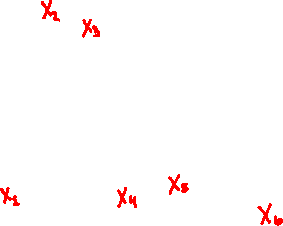 X2
X3
X1
X4
X5
X6